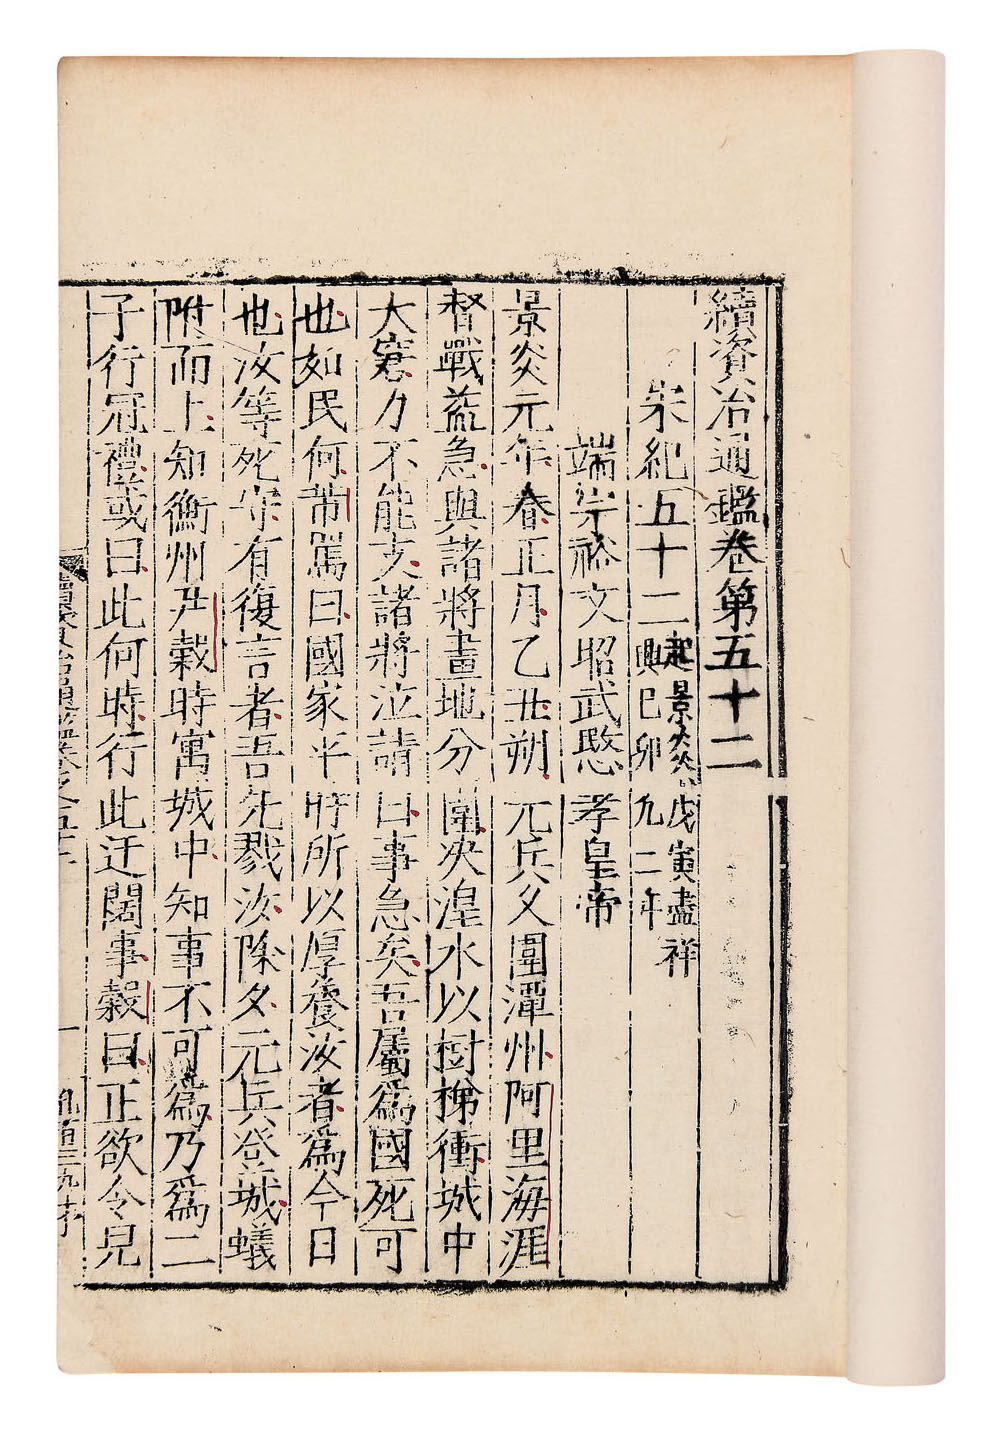 續資治通鑑卷第五十二
宋紀五十二起景炎戊寅盡祥興巳卯九二年
端宗裕文昭武愍孝皇帝
景炎元年春正月乙丑朔元兵乂圍潭州阿里海涯
督戰益急與諸將畫地分圍决湟水以樹梯衝城中
大窘力不能支諸將泣請曰事急矣吾屬爲國死可
也如民何芾罵曰國家平時所以厚養汝者爲今日
也汝等死守有復言者吾先戮汝除夕元兵登城蟻
附而上知衡州尹穀時寓城中知事不可爲乃爲二
子行冠禮或曰此何時行此迂闊事穀曰正欲令兒
續資治通鑑卷之五十二
一